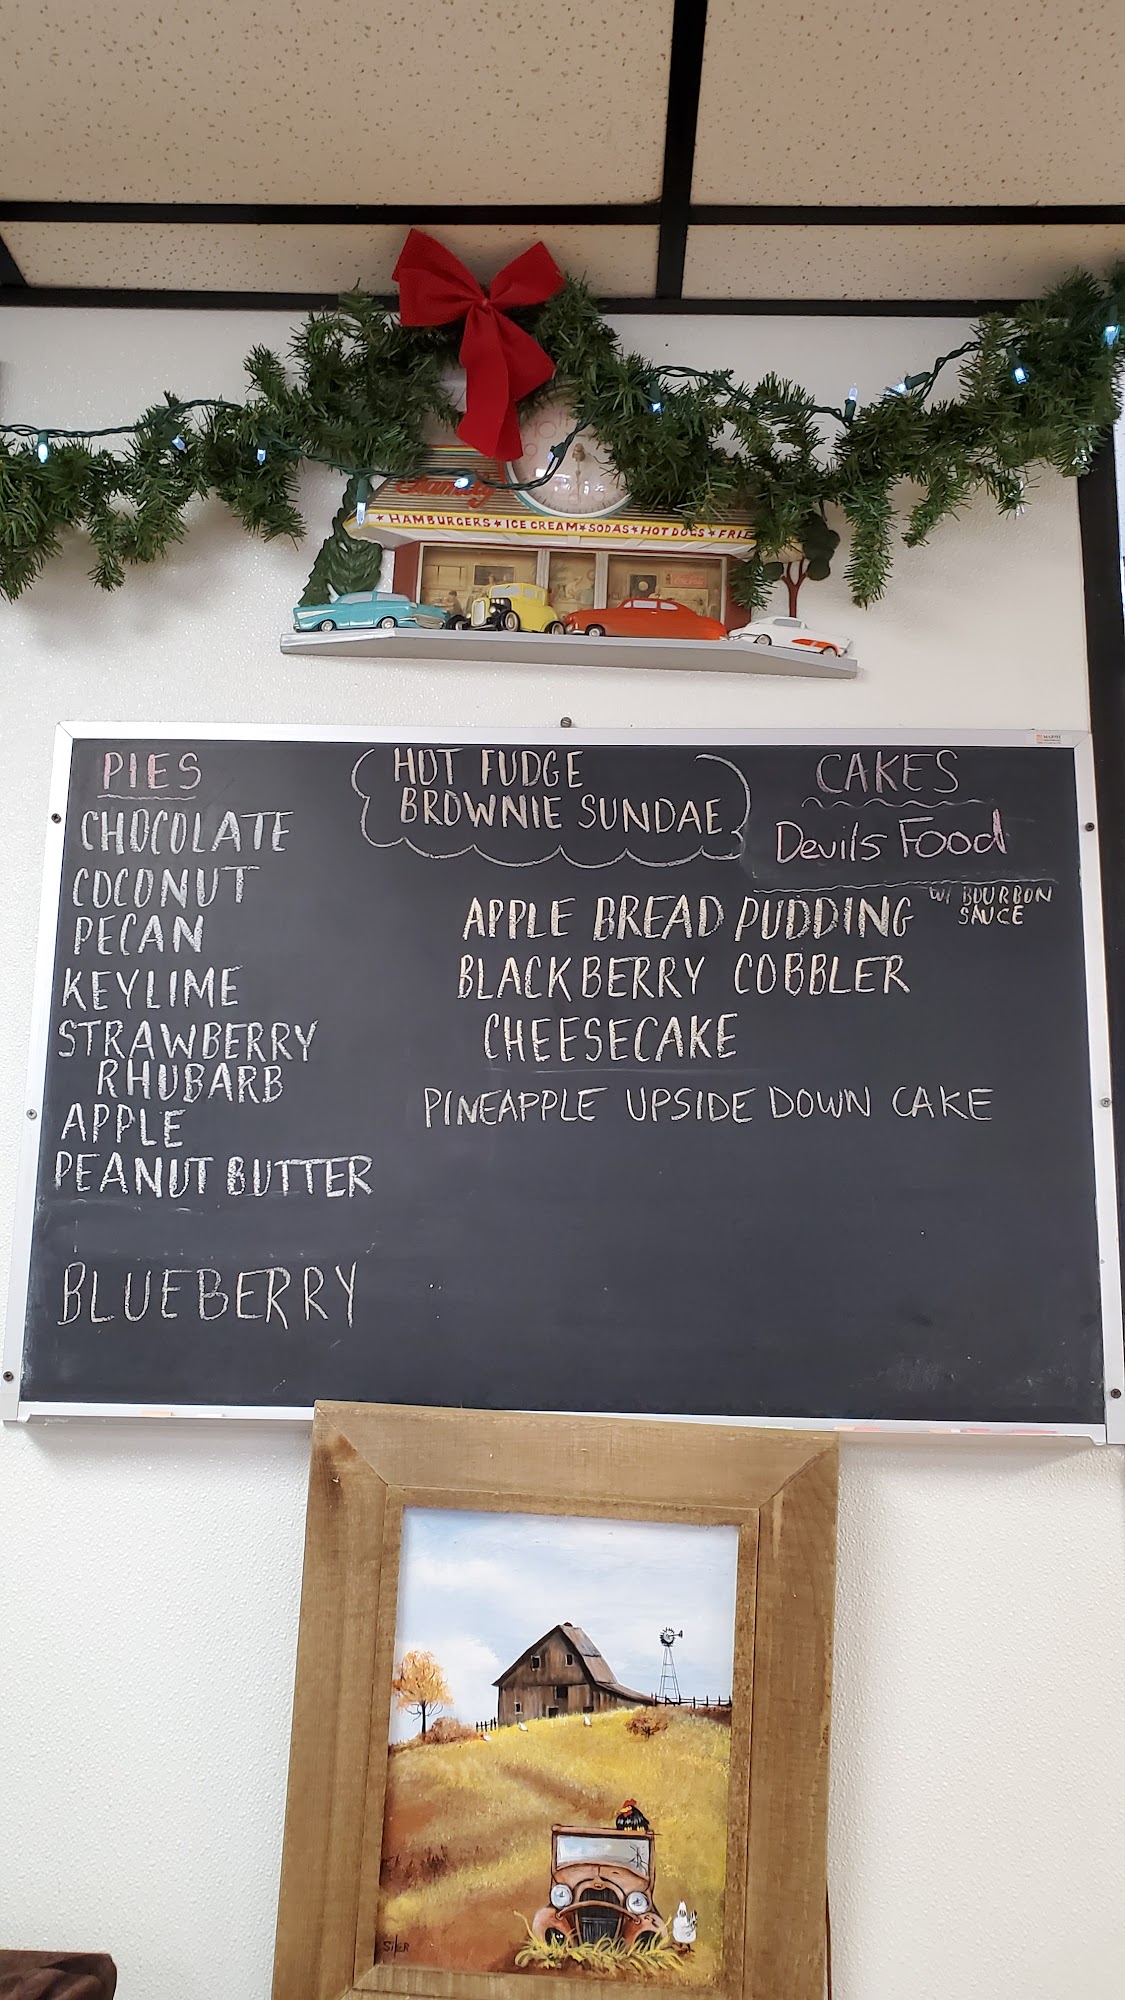 HAMBURGERS ★ ICE CREAM ★ SODAS ★ HOT DOGS ★ FRIE
PIES
CHOCOLATE
COCONUT
PECAN
KEYLIME
STRAWBERRY
RHUBARB
APPLE
PEANUT BUTTER
BLUEBERRY
HOT FUDGE
BROWNIE SUNDAE
CAKES
Devils Food
APPLE BREAD PUDDING W/ BOURBON
SAUCE
BLACKBERRY COBBLER
CHEESECAKE
PINEAPPLE UPSIDE DOWN CAKE